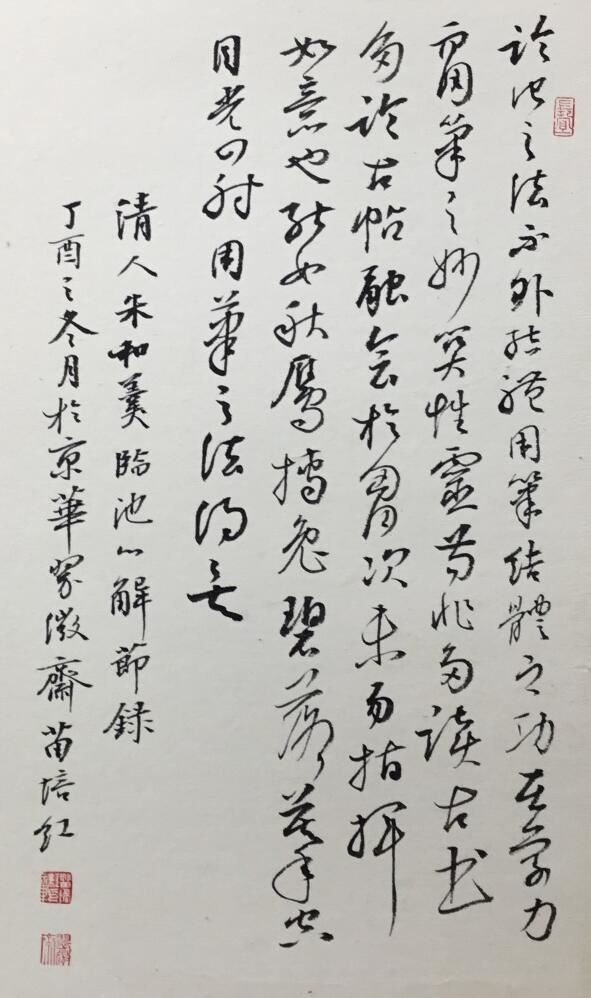 臨池之法不外結體用筆結體之功在學力
而用筆之妙關性靈苟非多讀古書
多臨古帖融會於胸次未易指揮
如意也能如秋鷹搏兔碧落摩空
目光四射用筆之法得之矣
清人朱和羹臨池心解節錄
丁酉之冬月於京華翠微齋苗培红